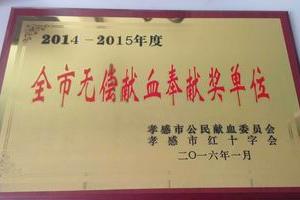 2014-2015年度
全市无偿献血奉献奖单位
孝感市公民献血委员会
孝感市红十字会
二〇一六年一月